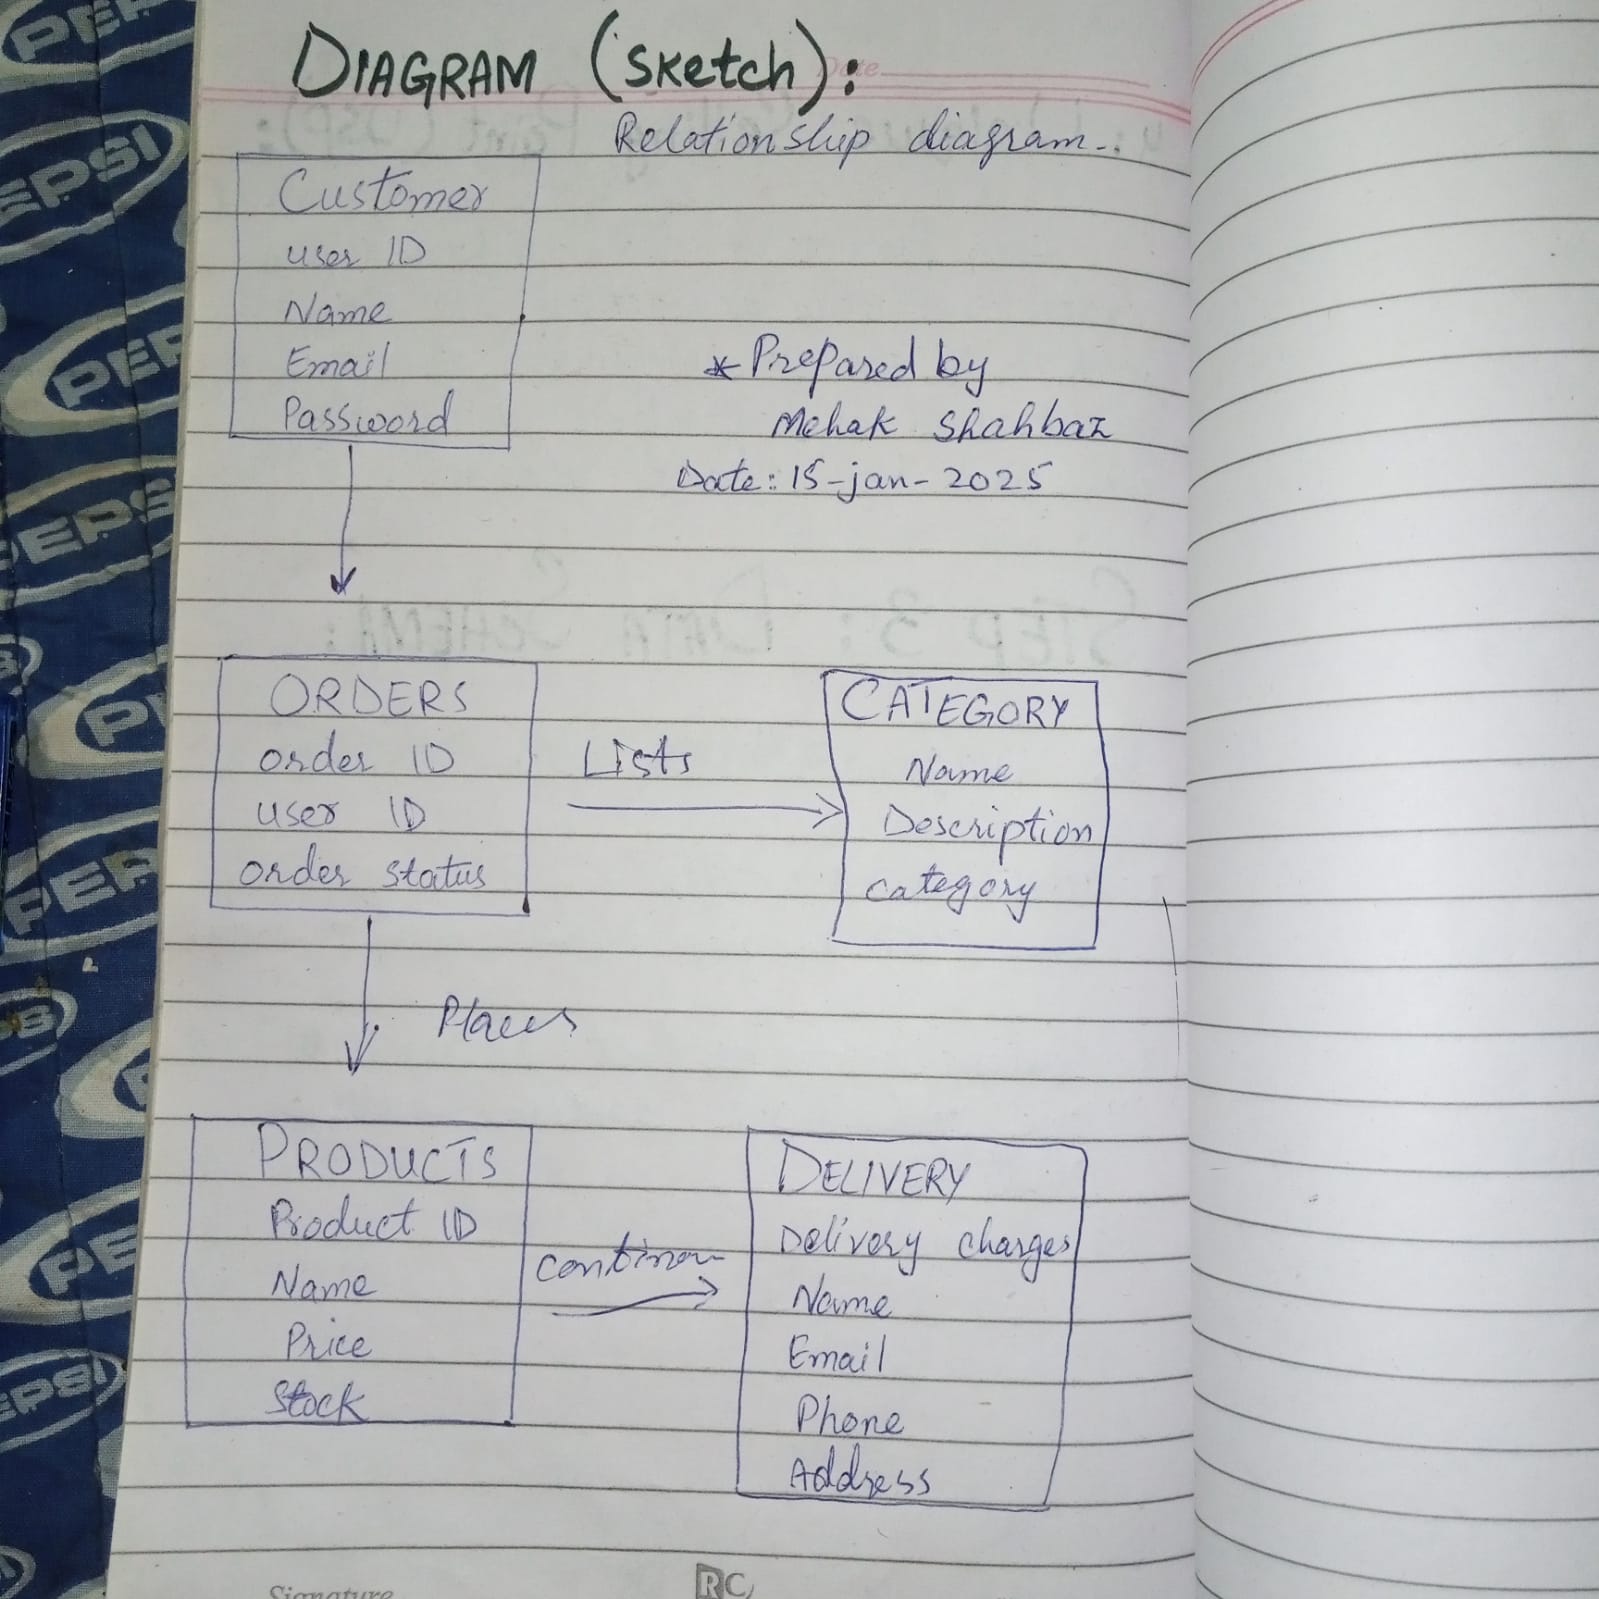 DIAGRAM (sketch):
Date
Relationship diagram..
Customer
user ID
Name
Email
Password
* Prepared by
Mehak Shahbaz
Date: 15-jan-2025
STEP 3: DATA SCHEMA:
ORDERS
order ID
user ID
order status
Lists
CATEGORY
Name
Description
category
Places
PRODUCTS
Product ID
Name
Price
Stock
DELIVERY
Delivery charges
Name
Email
Phone
Address
Signature
RC
PEPSI
PEPSI